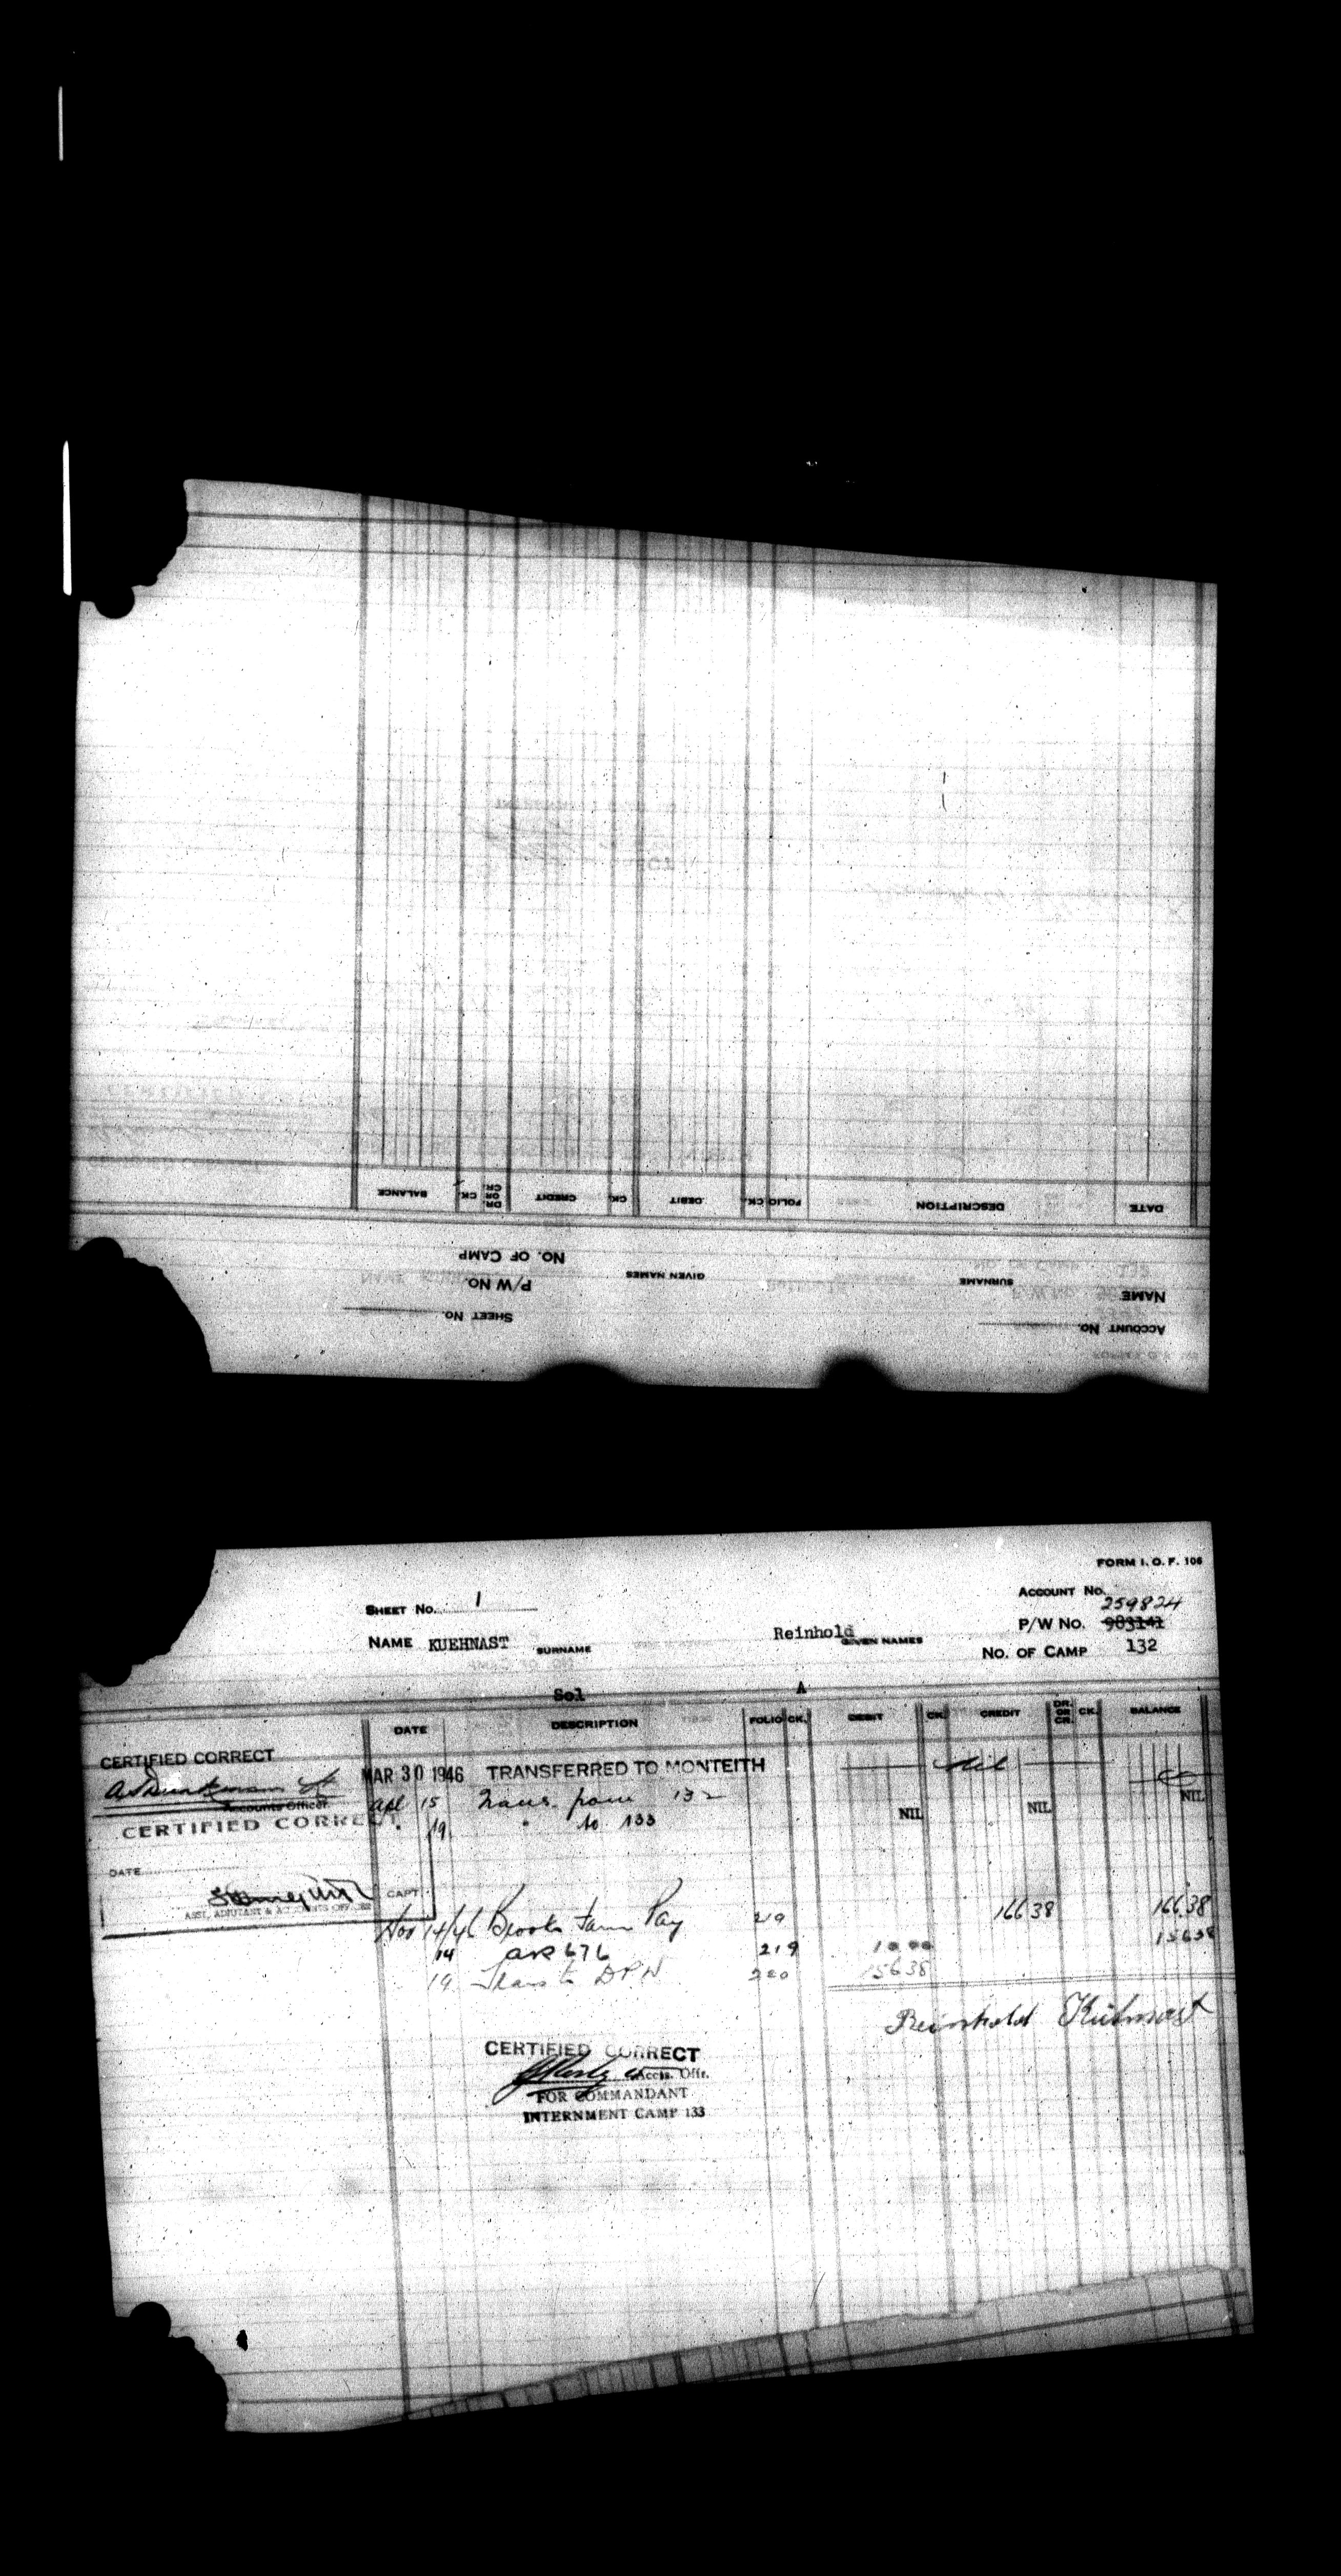 DATE DESCRIPTION FOLIO CK. DEBIT CK. CREDIT DR. OR CR. CK. BALANCE
NO. OF CAMP
NAME SURNAME GIVEN NAMES P/W No.
ACCOUNT No. SHEET No.
FORM I. O. F. 106
SHEET No. 1 ACCOUNT No.
259824
NAME KUEHNAST SURNAME Reinhold GIVEN NAMES P/W No. 983141
No. OF CAMP 132
Sol A
DATE DESCRIPTION FOLIO CK. DEBIT CK. CREDIT DR. OR CR. CK. BALANCE
CERTIFIED CORRECT
MAR 30 1946 TRANSFERRED TO MONTEITH Nil
Accounts Officer
Apl 15 Trans. from 132 NIL NIL NIL
CERTIFIED CORRECT
" 19 " to 133
DATE
CAPT.
ASST. ADJUTANT & ACCOUNTS OFFICER
Nov 14/46 Brooks Farm Pay 219 166 38 166 38
14 219 10 00 156 38
19 Trans to DPW 220 156 38
Reinhold Kühnast
CERTIFIED CORRECT
Accts. Offr.
FOR COMMANDANT
INTERNMENT CAMP 133